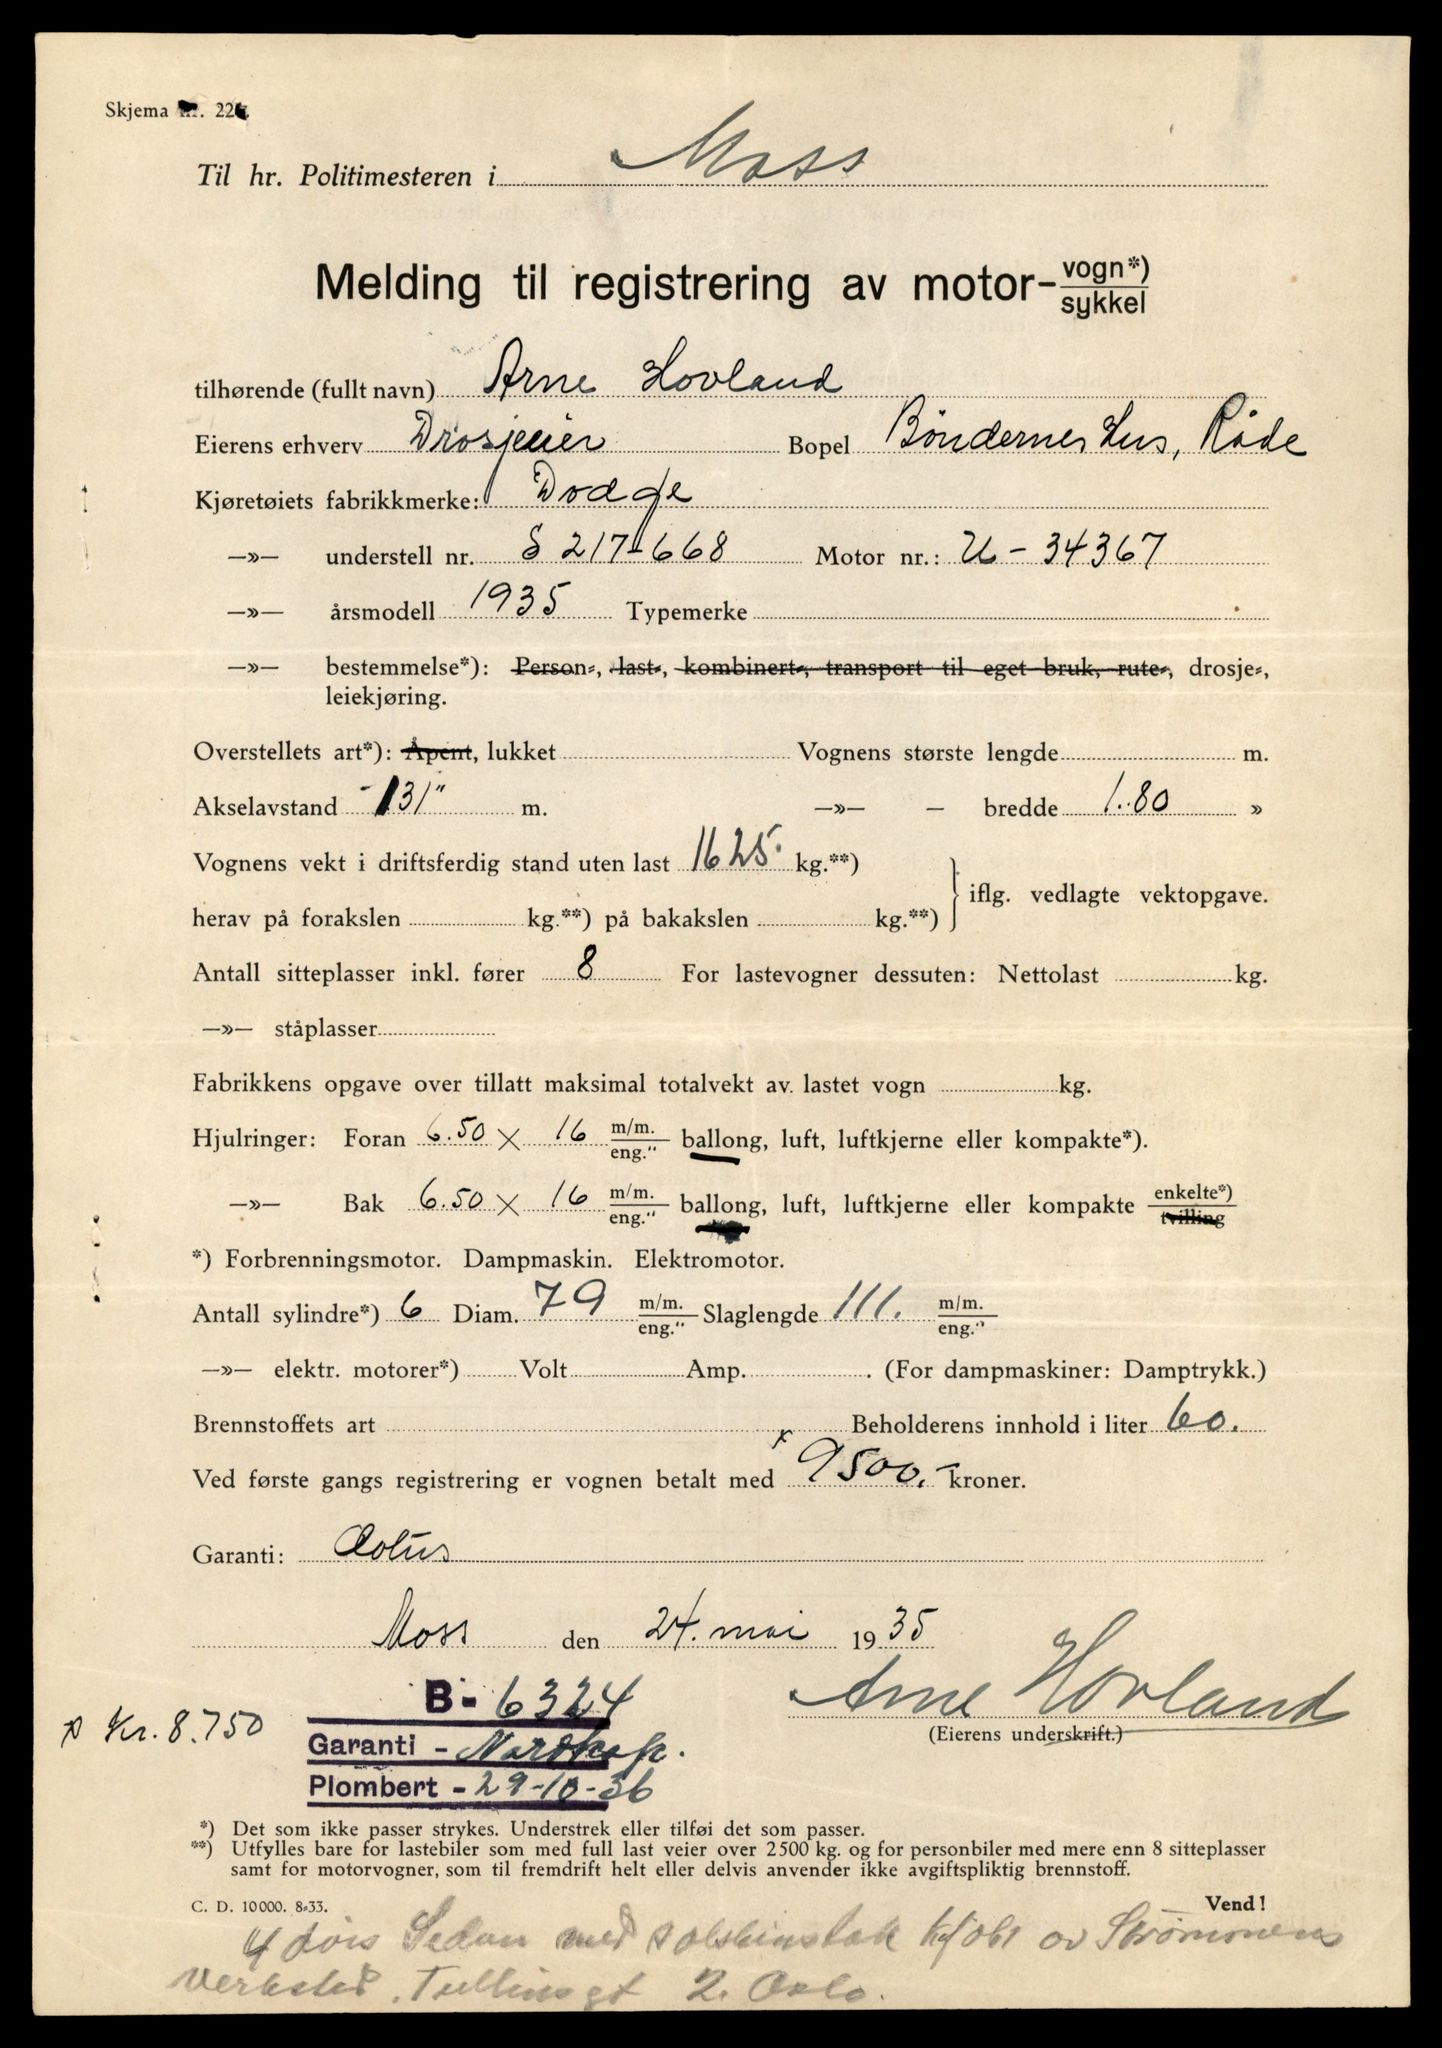 Skjema nr. 22
Til hr. Politimesteren i Moss
Melding til registrering av motor-vogn*)
sykkel
tilhørende (fullt navn) Arne Hovland
Eierens erhverv Drosjeeier Bopel Bøndernes Hus, Råde
Kjøretøiets fabrikkmerke: Dodge
—»— understell nr. S 217-668 Motor nr.: U-34367
—»— årsmodell 1935 Typemerke
—»— bestemmelse*): Person-, last-, kombinert-, transport til eget bruk, rute-, drosje-,
leiekjøring.
Overstellets art*): Åpent, lukket Vognens største lengde m.
Akselavstand 131" m. —»— - bredde 1.80 »
Vognens vekt i driftsferdig stand uten last 1625. kg.**)
iflg. vedlagte vektopgave.
herav på forakslen kg.**) på bakakslen kg.**)
Antall sitteplasser inkl. fører 8 For lastevogner dessuten: Nettolast kg.
—»— ståplasser
Fabrikkens opgave over tillatt maksimal totalvekt av. lastet vogn kg.
Hjulringer: Foran 6.50 × 16 m/m. eng." ballong, luft, luftkjerne eller kompakte*).
—»— Bak 6.50 × 16 m/m. eng." ballong, luft, luftkjerne eller kompakte enkelte*) tvilling
*) Forbrenningsmotor. Dampmaskin. Elektromotor.
Antall sylindre*) 6 Diam. 79 m/m. eng." Slaglengde 111. m/m. eng."
—»— elektr. motorer*) Volt Amp. . (For dampmaskiner: Damptrykk.)
Brennstoffets art Beholderens innhold i liter 60.
Ved første gangs registrering er vognen betalt med x 9500.- kroner.
Garanti: Æolus
Moss den 24. mai 1935
Arne Hovland
(Eierens underskrift.)
B-6324
x Kr. 8.750
Garanti - Nordkap.
Plombert - 29-10-36
*) Det som ikke passer strykes. Understrek eller tilføi det som passer.
**) Utfylles bare for lastebiler som med full last veier over 2500 kg. og for personbiler med mere enn 8 sitteplasser
samt for motorvogner, som til fremdrift helt eller delvis anvender ikke avgiftspliktig brennstoff.
C. D. 10000. 8-33. Vend!
4 dørs Sedan med solskinstak kjøbt av Strømmens
Verksted. Tullinsgt 2. Oslo.